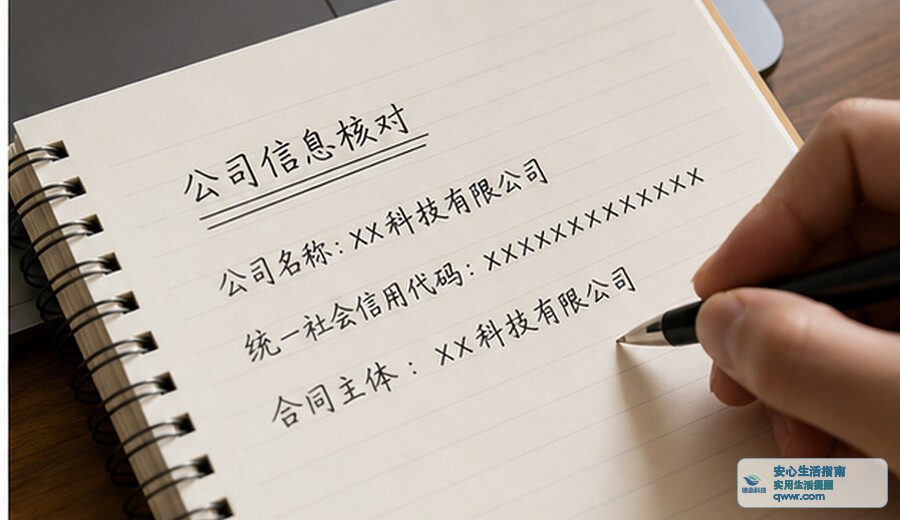 公司信息核对
公司名称：XX科技有限公司
统一社会信用代码：XXXXXXXXXXXXXX
合同主体：XX科技有限公司
安心生活指南
实用生活提醒
qwwr.com